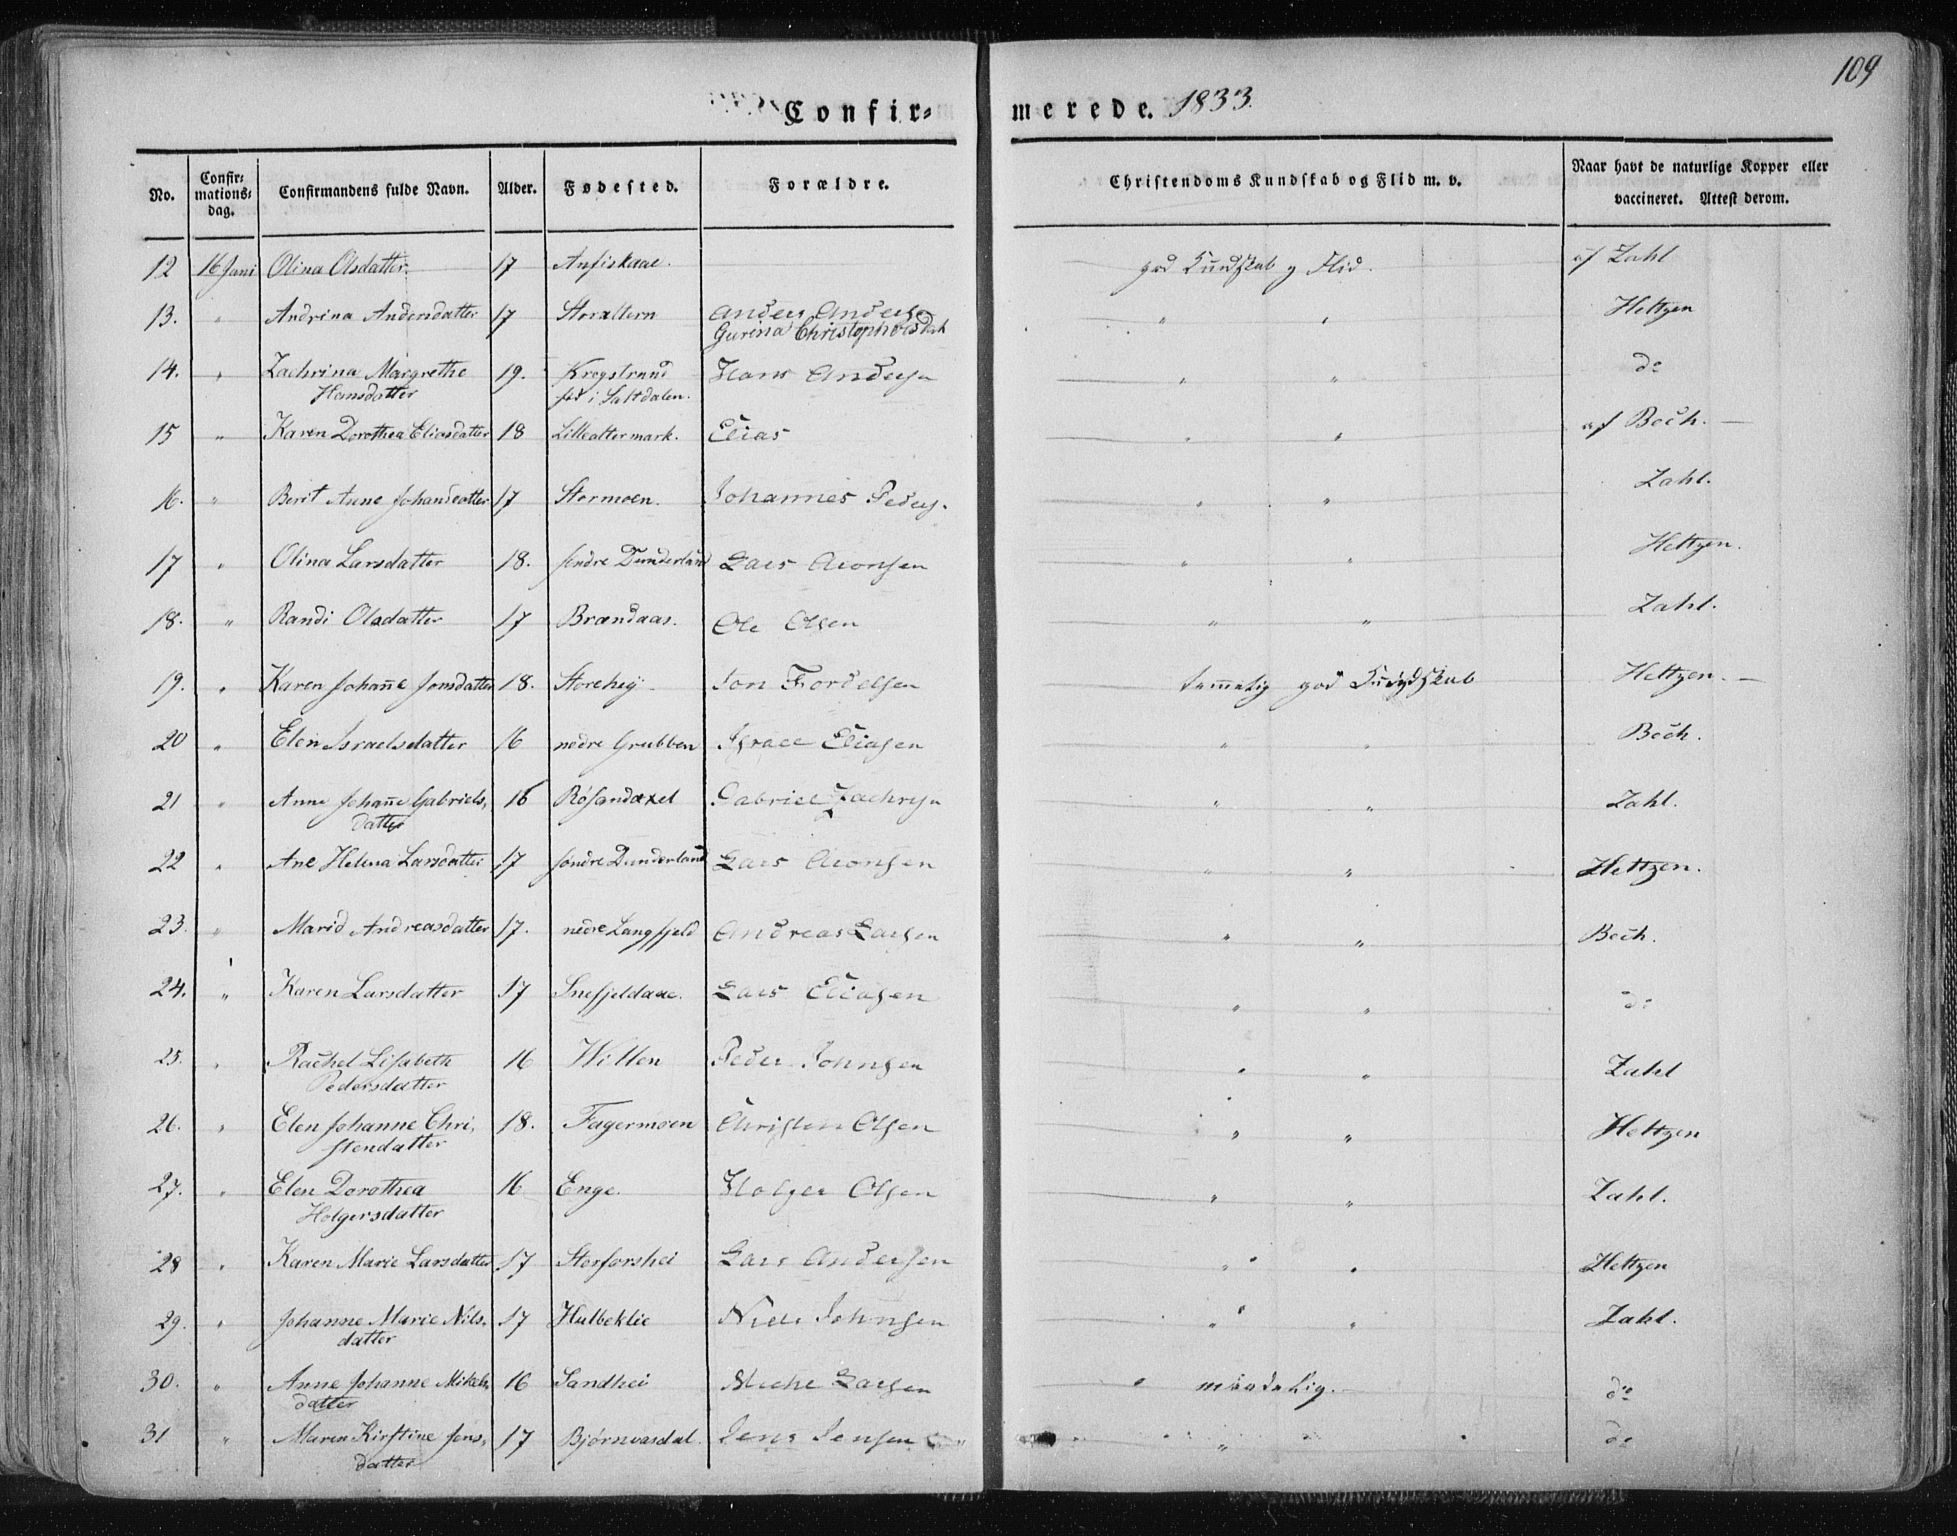 109
Confir- merede. 1833.
No. Confir-mations-dag. Confirmandens fulde Navn. Alder. Fødested. Forældre. Christendoms Kundskab og Flid m. v. Naar havt de naturlige Kopper eller vaccineret. Attest derom.
12 16 Juni Olina Olsdatter 17 god Kundskab og Flid. af Zahl
13. " Andrina Andersdatter 17 Storaltern Anders Andersen " " Heltzen
Gurina Christophersdat
14. " Zachrina Margrethe 19. Krogstrand Hans Andersen " " do
Hansdatter fød i Saltdalen.
15 " Karen Dorothea Eliasdatter 18 Lillealtermark. Elias " " af Bech.
16. " Berit Anne Johansdatter 17 Stormoen. Johannes Peders. " " Zahl.
17 " Olina Larsdatter 18. søndre Dunderland Lars Aronsen " " Heltzen.
18. " Randi Olsdatter 17 Brændaas. Ole Olsen " " Zahl.
19. " Karen Johañe Jonsdatter 18. Storehei Jon Fordelsen temmelig god Kundskab Heltzen.
20 " Elen Israelsdatter 16 nedre Grubben Israel Eliasen " " Bech.
21 " Anne Johañe Gabriels- 16 Røsandaxel Gabriel Zachrisen " " Zahl.
datter
22 " Ane Helena Larsdatter 17 søndre Dunderland Lars Aronsen " " Heltzen.
23. " Marid Andreasdatter 17. nedre Langfjeld Andreas Larsen " " Bech.
24. " Karen Larsdatter 17 Snefjeldaae. Lars Eliasen " " do
25. " Rachel Lisabeth 16 Willen Peder Johnsen " " Zahl
Pedersdatter
26. " Elen Johanne Chri- 18. Fagermoen Christen Olsen " " Heltzen
stendatter
27. " Elen Dorothea 16 Enge. Holger Olsen " " Zahl.
Holgersdatter
28 " Karen Marie Larsdatter 17 Storforshei Lars Andersen " " Heltzen
29. " Johanne Marie Nils- 17 Hulbeklie Niels Johnsen " " Zahl.
datter
30. " Anne Johanne Mikels- 16 Sandhei Larsen " maadelig. do
datter
31 " Maren Kirstine Jens- 17 Bjørnvasdal. Jens Jensen " do
datter